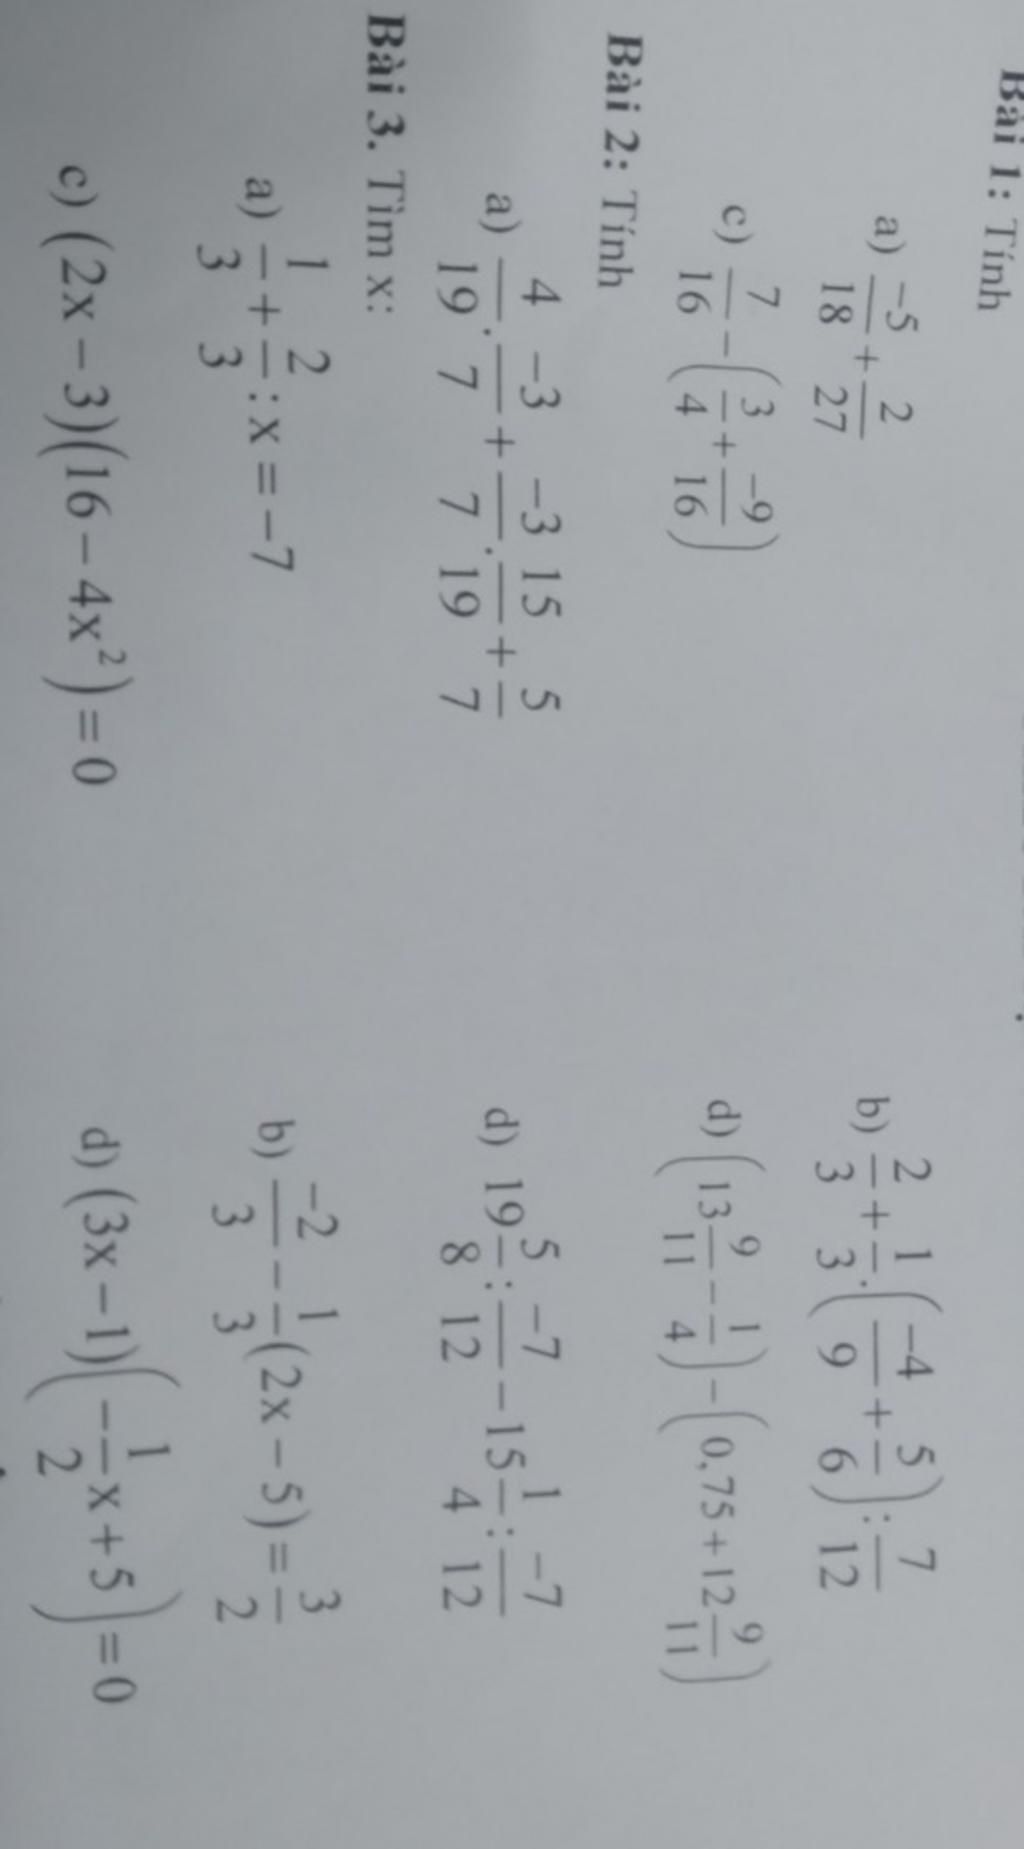 Bài 1: Tính
a) \frac{-5}{18} + \frac{2}{27} b) \frac{2}{3} + \frac{1}{3} . \left( \frac{-4}{9} + \frac{5}{6} \right) : \frac{7}{12}
c) \frac{7}{16} - \left( \frac{3}{4} + \frac{-9}{16} \right) d) \left( 13\frac{9}{11} - \frac{1}{4} \right) - \left( 0,75 + 12\frac{9}{11} \right)
Bài 2: Tính
a) \frac{4}{19} . \frac{-3}{7} + \frac{-3}{7} . \frac{15}{19} + \frac{5}{7} d) 19\frac{5}{8} : \frac{-7}{12} - 15\frac{1}{4} : \frac{-7}{12}
Bài 3. Tìm x:
a) \frac{1}{3} + \frac{2}{3} : x = -7 b) \frac{-2}{3} - \frac{1}{3}(2x - 5) = \frac{3}{2}
c) (2x - 3)(16 - 4x^2) = 0 d) (3x - 1)\left( -\frac{1}{2}x + 5 \right) = 0